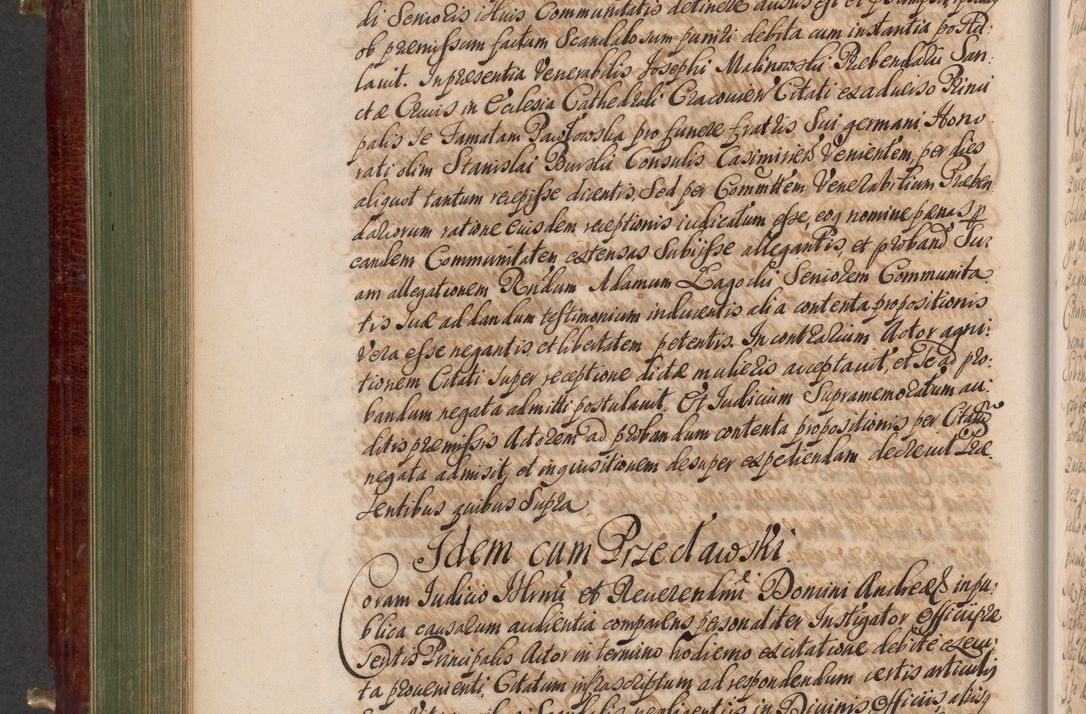 di Senioris illius Communitatis detinere ausus est et
ob præmissum factum Scandalosum puniri debita cum instantia postu-
lavit. In præsentia Venerabilis Josephi Malinowski Præbendarii San-
ctæ Crucis in Ecclesia Cathedrali Cracovien Citati ex adverso Princi
palis se Famatam Pawłowska pro funere fratris sui germani Hono-
rati olim Stanislai Burski Consulis Casimirien Venientem, per dies
aliquot tantum recepisse dicentis, Sed per Committem Venerabilium Præben
dariorum ratione eiusdem receptionis iudicatum esse, eoq nomine pœnas p
eandem Communitatem extensas Subiisse allegantis, et proband Su
am allegationem Rndum Adamum Łagocki Seniorem Communita
tis suæ ad dandum testimonium inducentis alia contenta propositionis
Vera esse negantis, et libertatem petentis. In contrarium Actor agni:
tionem Citati super receptione dictæ mulieris acceptavit, et se ad pro:
bandum negata admitti postulavit. Et Iudicium Supramemoratum au:
ditis præmissis Actorem ad probandum contenta propositionis per Citatu
negata admisit, et inquisitionem desuper expediendam decrevit Præ
sentibus quibus Supra
Idem cum Przecławski
Coram Iudicio Illrmi et Reverendmi Domini Andreæ in pu:
blica causarum audientia comparens personaliter Instigator Officii præ
sentis Principalis Actor in termino hodierno ex citatione debite execu:
ta provenienti, Citatum infrascriptum ad respondendum certis articulis
negligentiis in Divinis Officiis aliisq